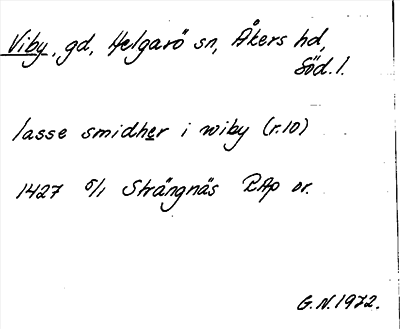 Viby, gd, Helgarö sn, Åkers hd,
Söd. l.
lasse smidher i wiby (r.10)
1427 5/1 Strängnäs RAp or.
G.N. 1972.